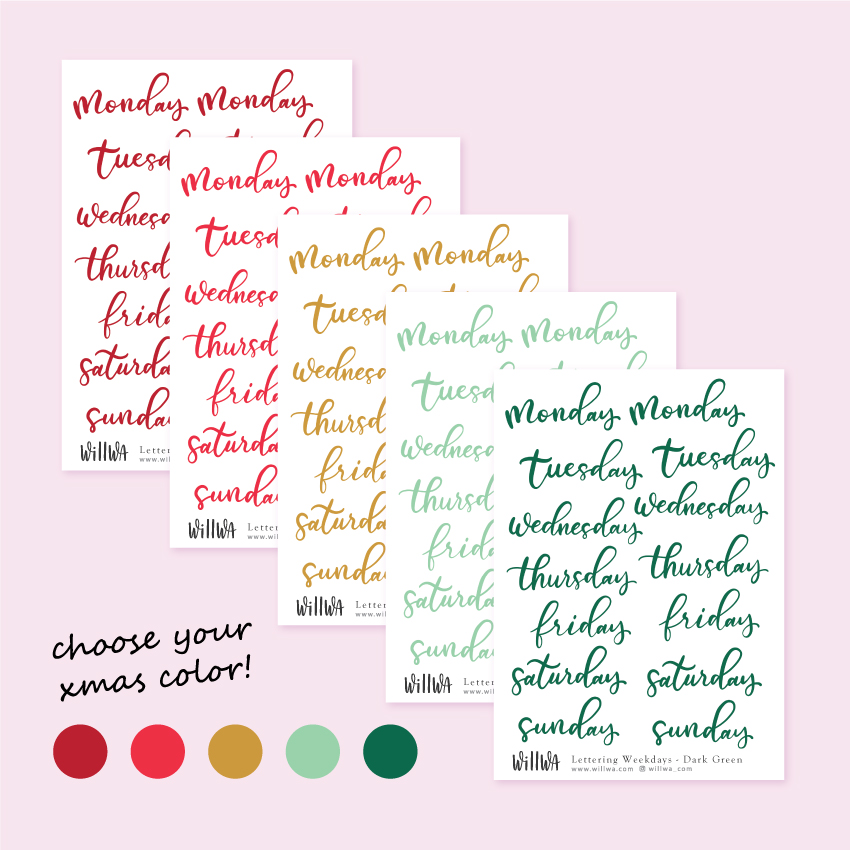 monday monday
tuesd
wednesda
thursd
frida
saturda
sunda
WillWA
Lette
www.will
monday monday
tuesd
wednesda
thursd
frida
saturda
sunda
WillWA
Lettering
www.willw
monday monday
tuesd
wednesda
thursd
frida
saturda
sunda
WillWA
Letteri
www.willw
monday monday
tuesd
wednesda
thursd
frida
saturda
sunday
WillWA
Lette
www.willw
monday monday
tuesday tuesday
wednesday wednesday
thursday thursday
friday friday
saturday saturday
sunday sunday
WillWA
Lettering Weekdays - Dark Green
www.willwa.com willwa_com
choose your
xmas color!